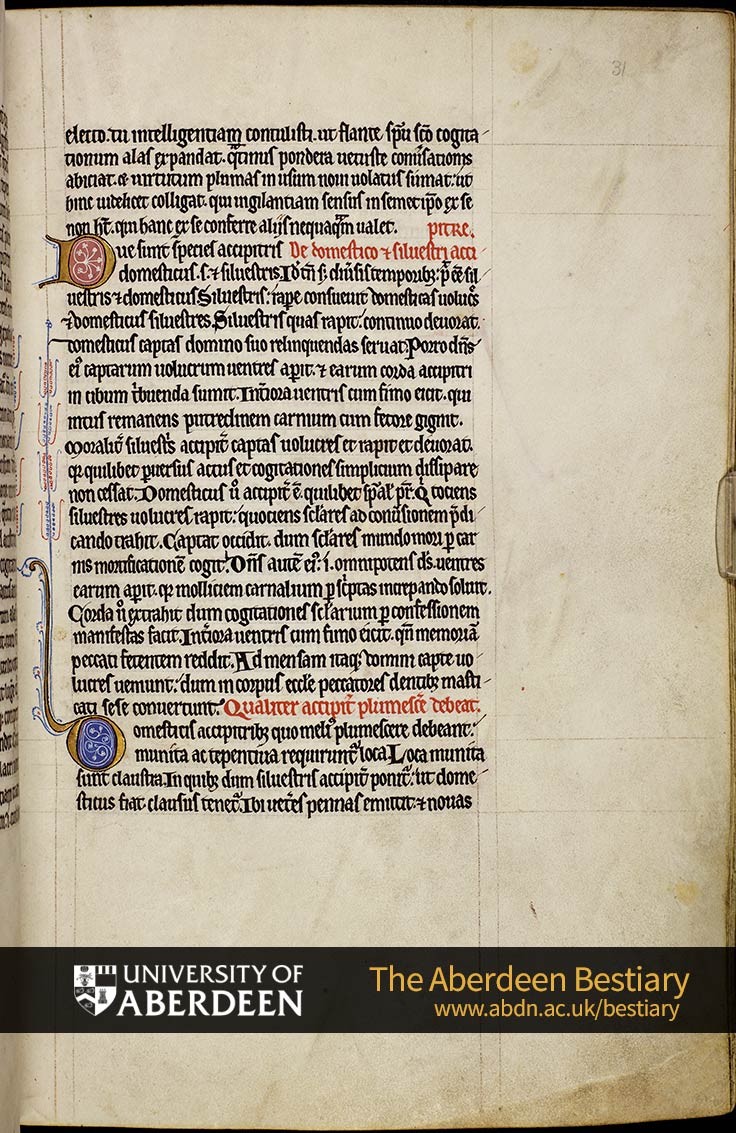 31
electo. tu intelligentiam contulisti. ut flante spu sco cogita
tionum alas expandat. qtinus pondera uetuste conuersationis
abiciat. et uirtutum plumas in usum noui uolatus sumat. ut
hinc uidelicet colligat. qui uigilantiam sensus in semetipo ex se
non ht. qui hanc ex se conferre alijs nequaqm ualet. pitre.
Due sunt species accipitris De domestico et siluestri acci
domesticus. s. et siluestris. Idem s; diuersis temporibus. pot esse sil
uestris et domesticus Siluestris: rape consueuit domesticas uolucres
et domesticus siluestres. Siluestris quas rapit. continuo deuorat.
domesticus captas domino suo relinquendas seruat. Porro dns
ei captarum uolucrum uentres aperit. et earum corda accipitri
in cibum tribuenda sumit. Interiora uentris cum fimo eicit. qui
intus remanens putredinem carnium cum fetore gignit.
Moralit siluestris accipit captas uolucres et rapit et deuorat.
qr quilibet peruersus actus et cogitationes simplicium dissipare
non cessat. Domesticus u accipit e. quilibet spalis pr. Qui tociens
siluestres uolucres rapit: quociens sclares ad conuersionem predi
cando trahit. Captas occidit. dum sclares mundo mori per car
nis mortificatione cogit. Dns aute ei. i. omnipotens ds. uentres
earum aperit. qr molliciem carnalium per scriptas increpando soluit.
Corda u extrahit dum cogitationes sclarium per confessionem
manifestas facit. Interiora uentris cum fimo eicit. qn memoria
peccati fetentem reddit. Ad mensam itaq; domini capte uo
lucres ueniunt. dum in corpus eccle peccatores dentibus masti
cati sese conuertunt. Qualiter accipit plumesce debeat.
Domesticis accipitribus quo melius plumescere debeant:
munita ac tepentia requiruntur loca Loca munita
sunt claustra. In quibus dum siluestris accipit ponitur: ut dome
sticus fiat clausus tenetur. Ibi ueteres pennas emittit. et nouas
UNIVERSITY OF
ABERDEEN
The Aberdeen Bestiary
www.abdn.ac.uk/bestiary